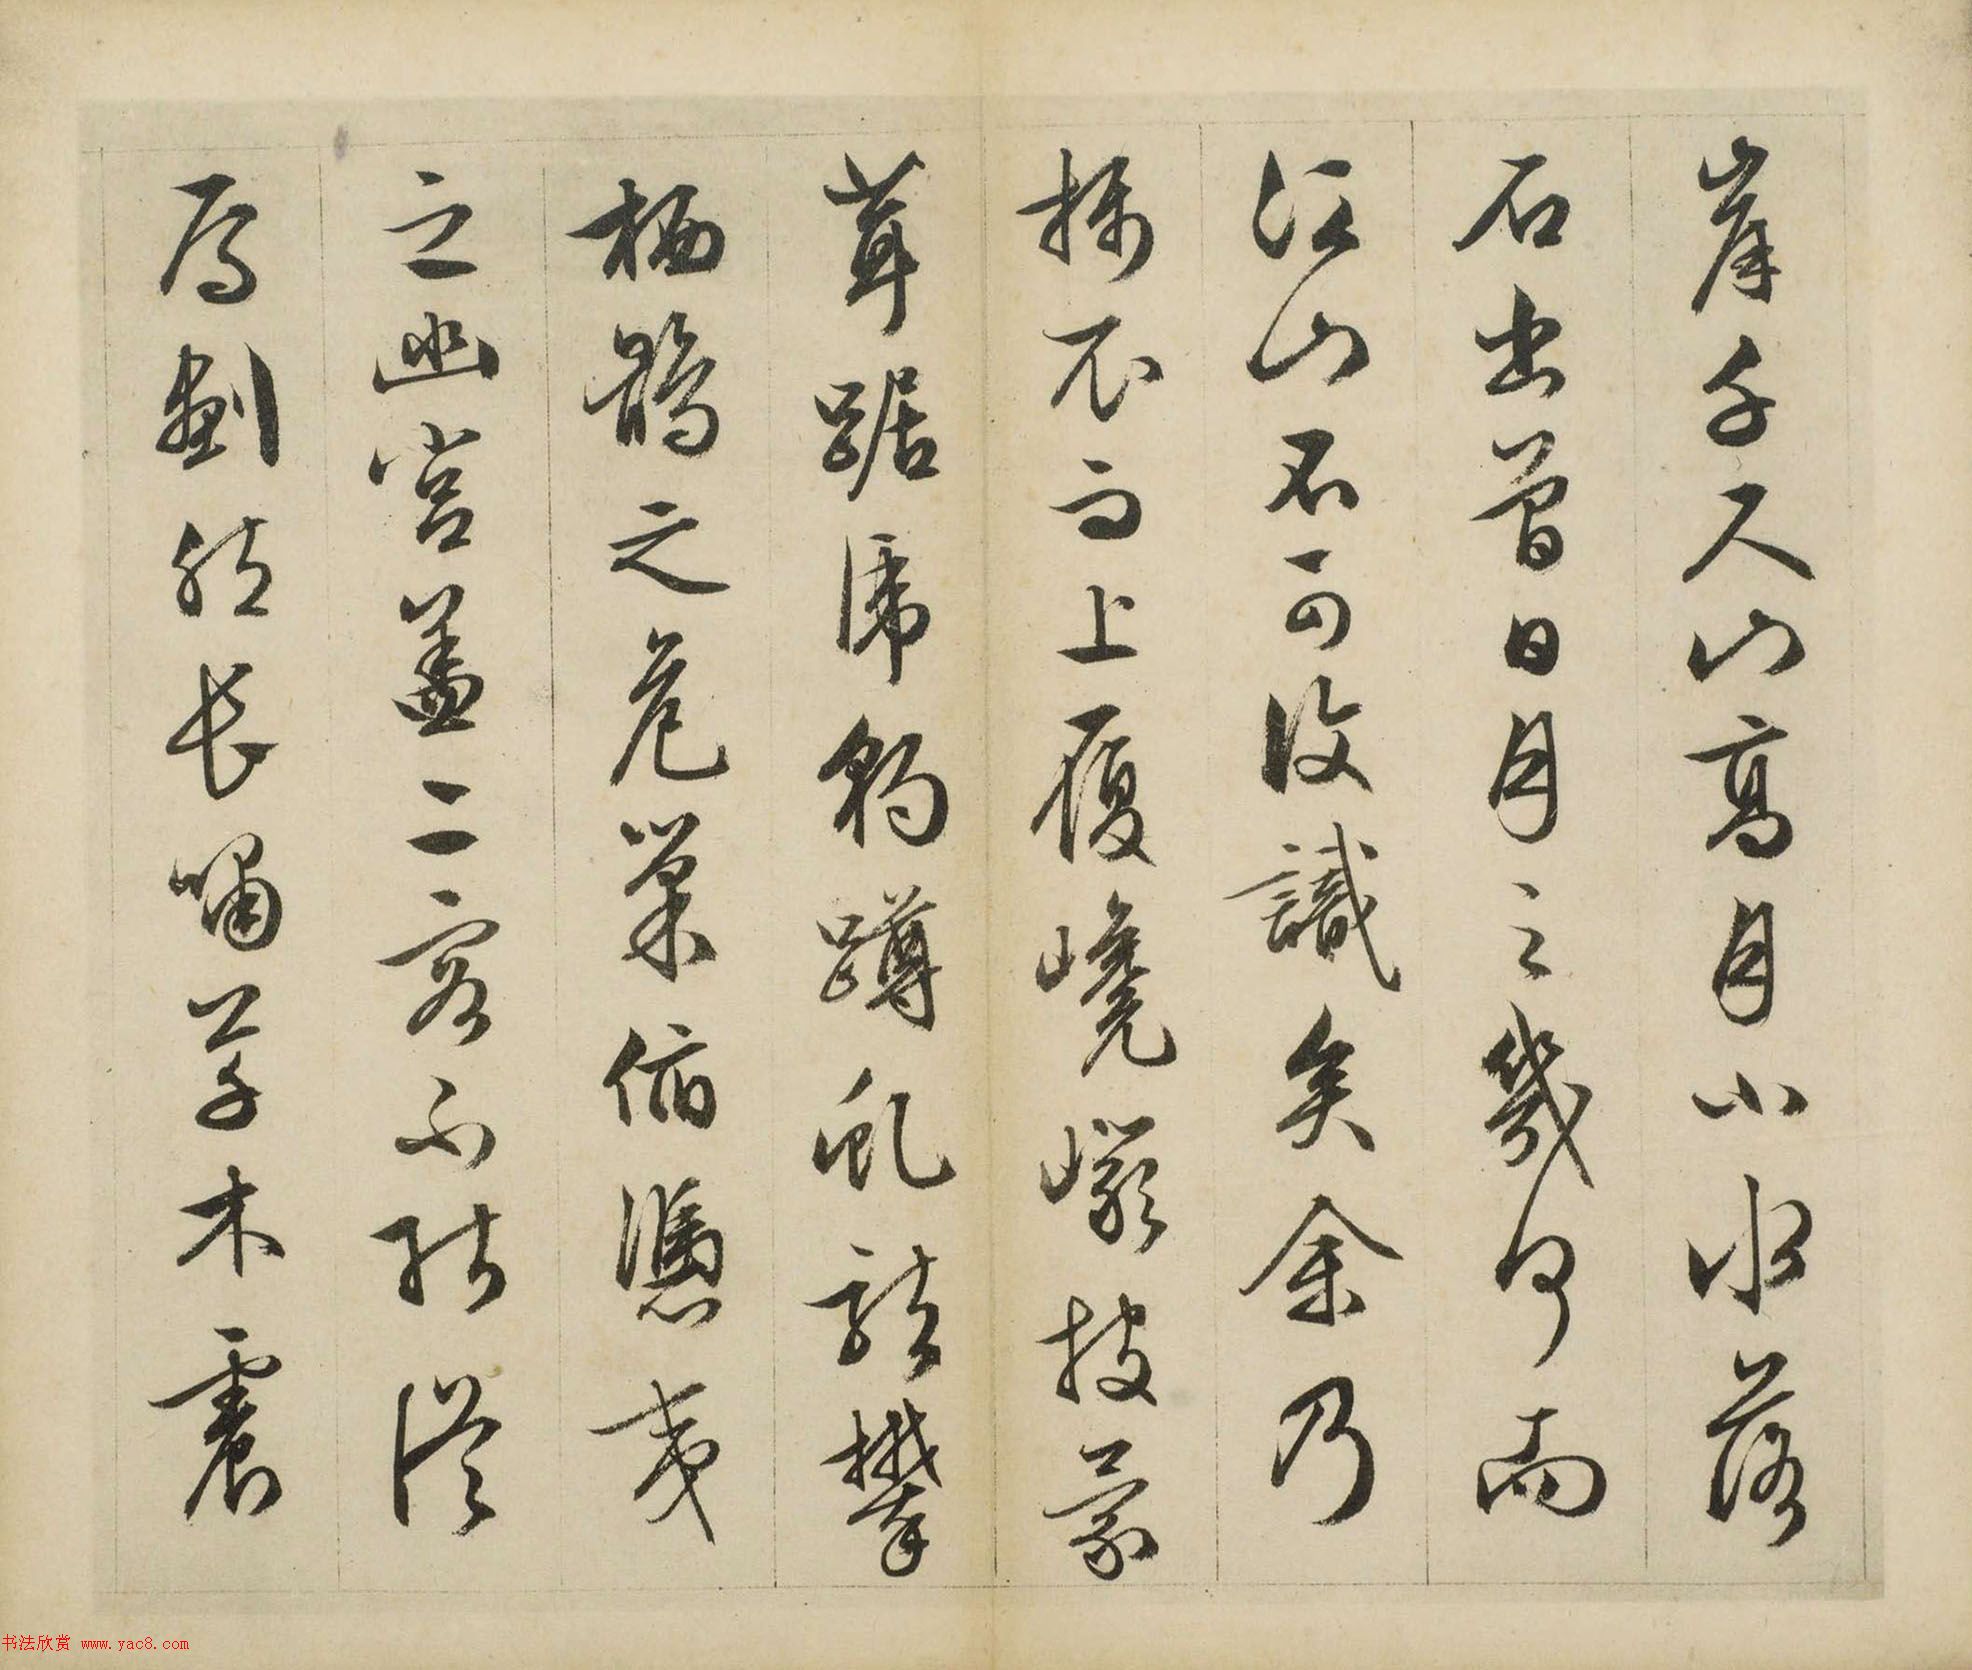 岸千尺山高月小水落
石出曾日月之幾何而
江山不可復識矣余乃
攝衣而上履巉巖披蒙
茸踞虎豹蹲虬龍攀
栖鶻之危巢俯馮夷
之幽宮蓋二客不能從
焉劃然長嘯草木震
书法欣赏 www.yac8.com